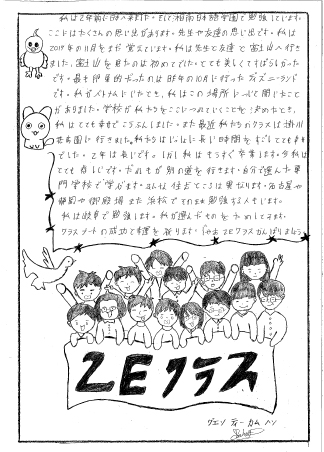 私は2年前に日本へ来ました。そして湘南日本語学園で勉強しています。
ここにはたくさんの思い出があります。先生や友達の思い出です。私は
2019年の11月をまだ覚えています。私は先生と友達と富士山へ行き
ました。富士山を見たのは初めてでした。とても美しくてすばらしかった
です。最も印象的だったのは昨年の10月に行ったディズニーランド
です。私がベトナムにいたとき、私はこの場所について聞いたこと
がありました。学校が私たちをここにつれていくことを決めたとき、
私はとても幸せでこうふんしました。また最近私たちのクラスは掛川
花鳥園に行きました。私たちはいっしょに長い時間をすごしてとても幸せ
でした。2年は長いです。しかし私はもうすぐ卒業します。今私は
とても悲しいです。だれもが別の道を行きます。自分で選んだ専
門学校で学びます。みんな住むところは異なります。名古屋や
静岡や御殿場また浜松でそのまま勉強する人もいます。
私は岐阜で勉強します。私が選んだものをつかめしてます。
クラスメートの成功と幸運を祈ります。2Eクラスがんばりましょう
2Eクラス
グエン ティ カム ハン